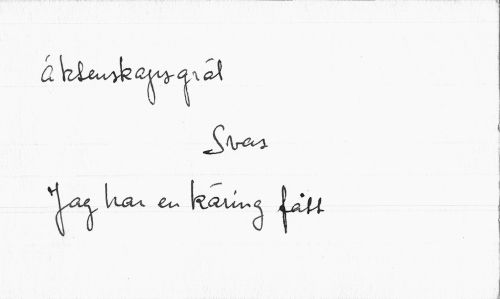 Äktenskapsgräl
Svar
Jag har en käring fått